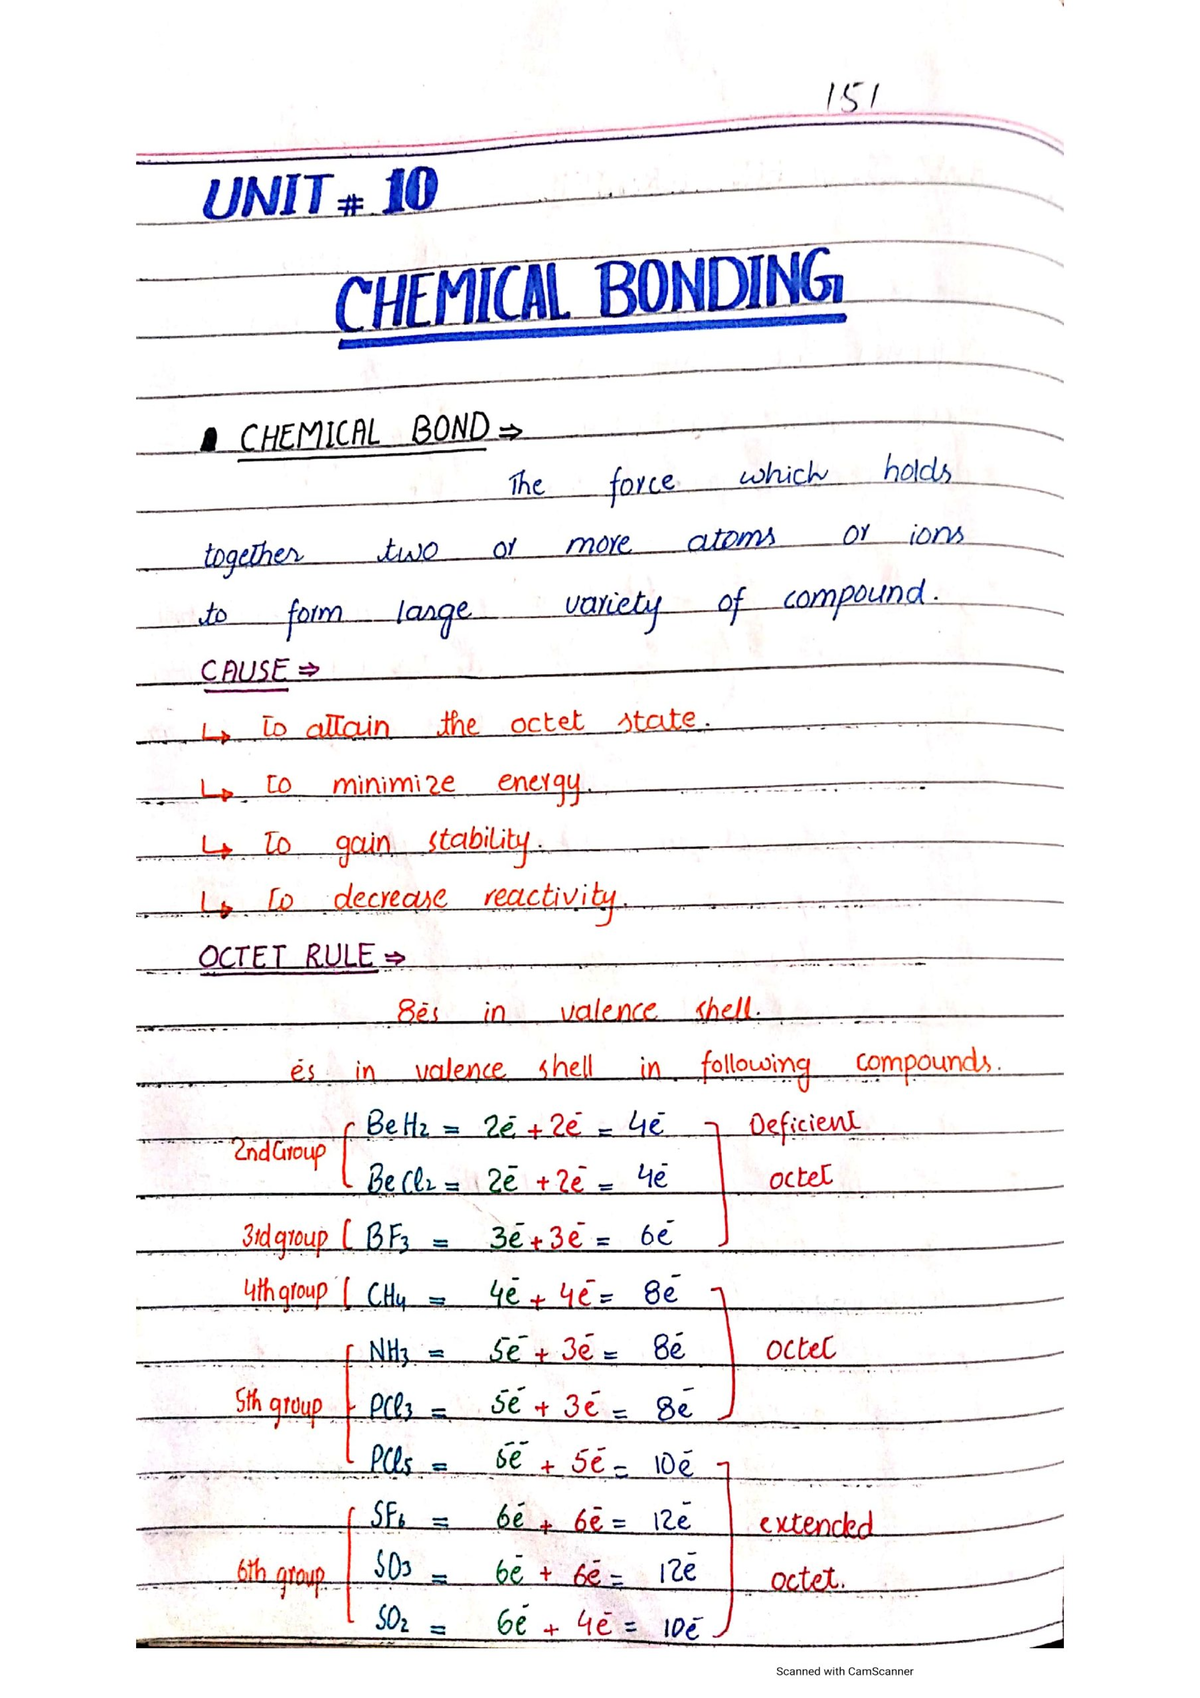 151
UNIT # 10
CHEMICAL BONDING
CHEMICAL BOND ⇒
The force which holds
together two or more atoms or ions
to form large variety of compound.
CAUSE ⇒
↳ to attain the octet state.
↳ to minimize energy.
↳ to gain stability.
↳ to decrease reactivity.
OCTET RULE ⇒
8ēs in valence shell.
ēs in valence shell in following compounds.
BeH2 = 2ē + 2ē = 4ē Deficient
2nd Group
BeCl2 = 2ē + 2ē = 4ē octet
3rd group BF3 = 3ē + 3ē = 6ē
4th group CH4 = 4ē + 4ē = 8ē
NH3 = 5ē + 3ē = 8ē octet
5th group PCl3 = 5ē + 3ē = 8ē
PCl5 = 5ē + 5ē = 10ē
SF6 = 6ē + 6ē = 12ē extended
6th group SO3 = 6ē + 6ē = 12ē octet.
SO2 = 6ē + 4ē = 10ē
Scanned with CamScanner